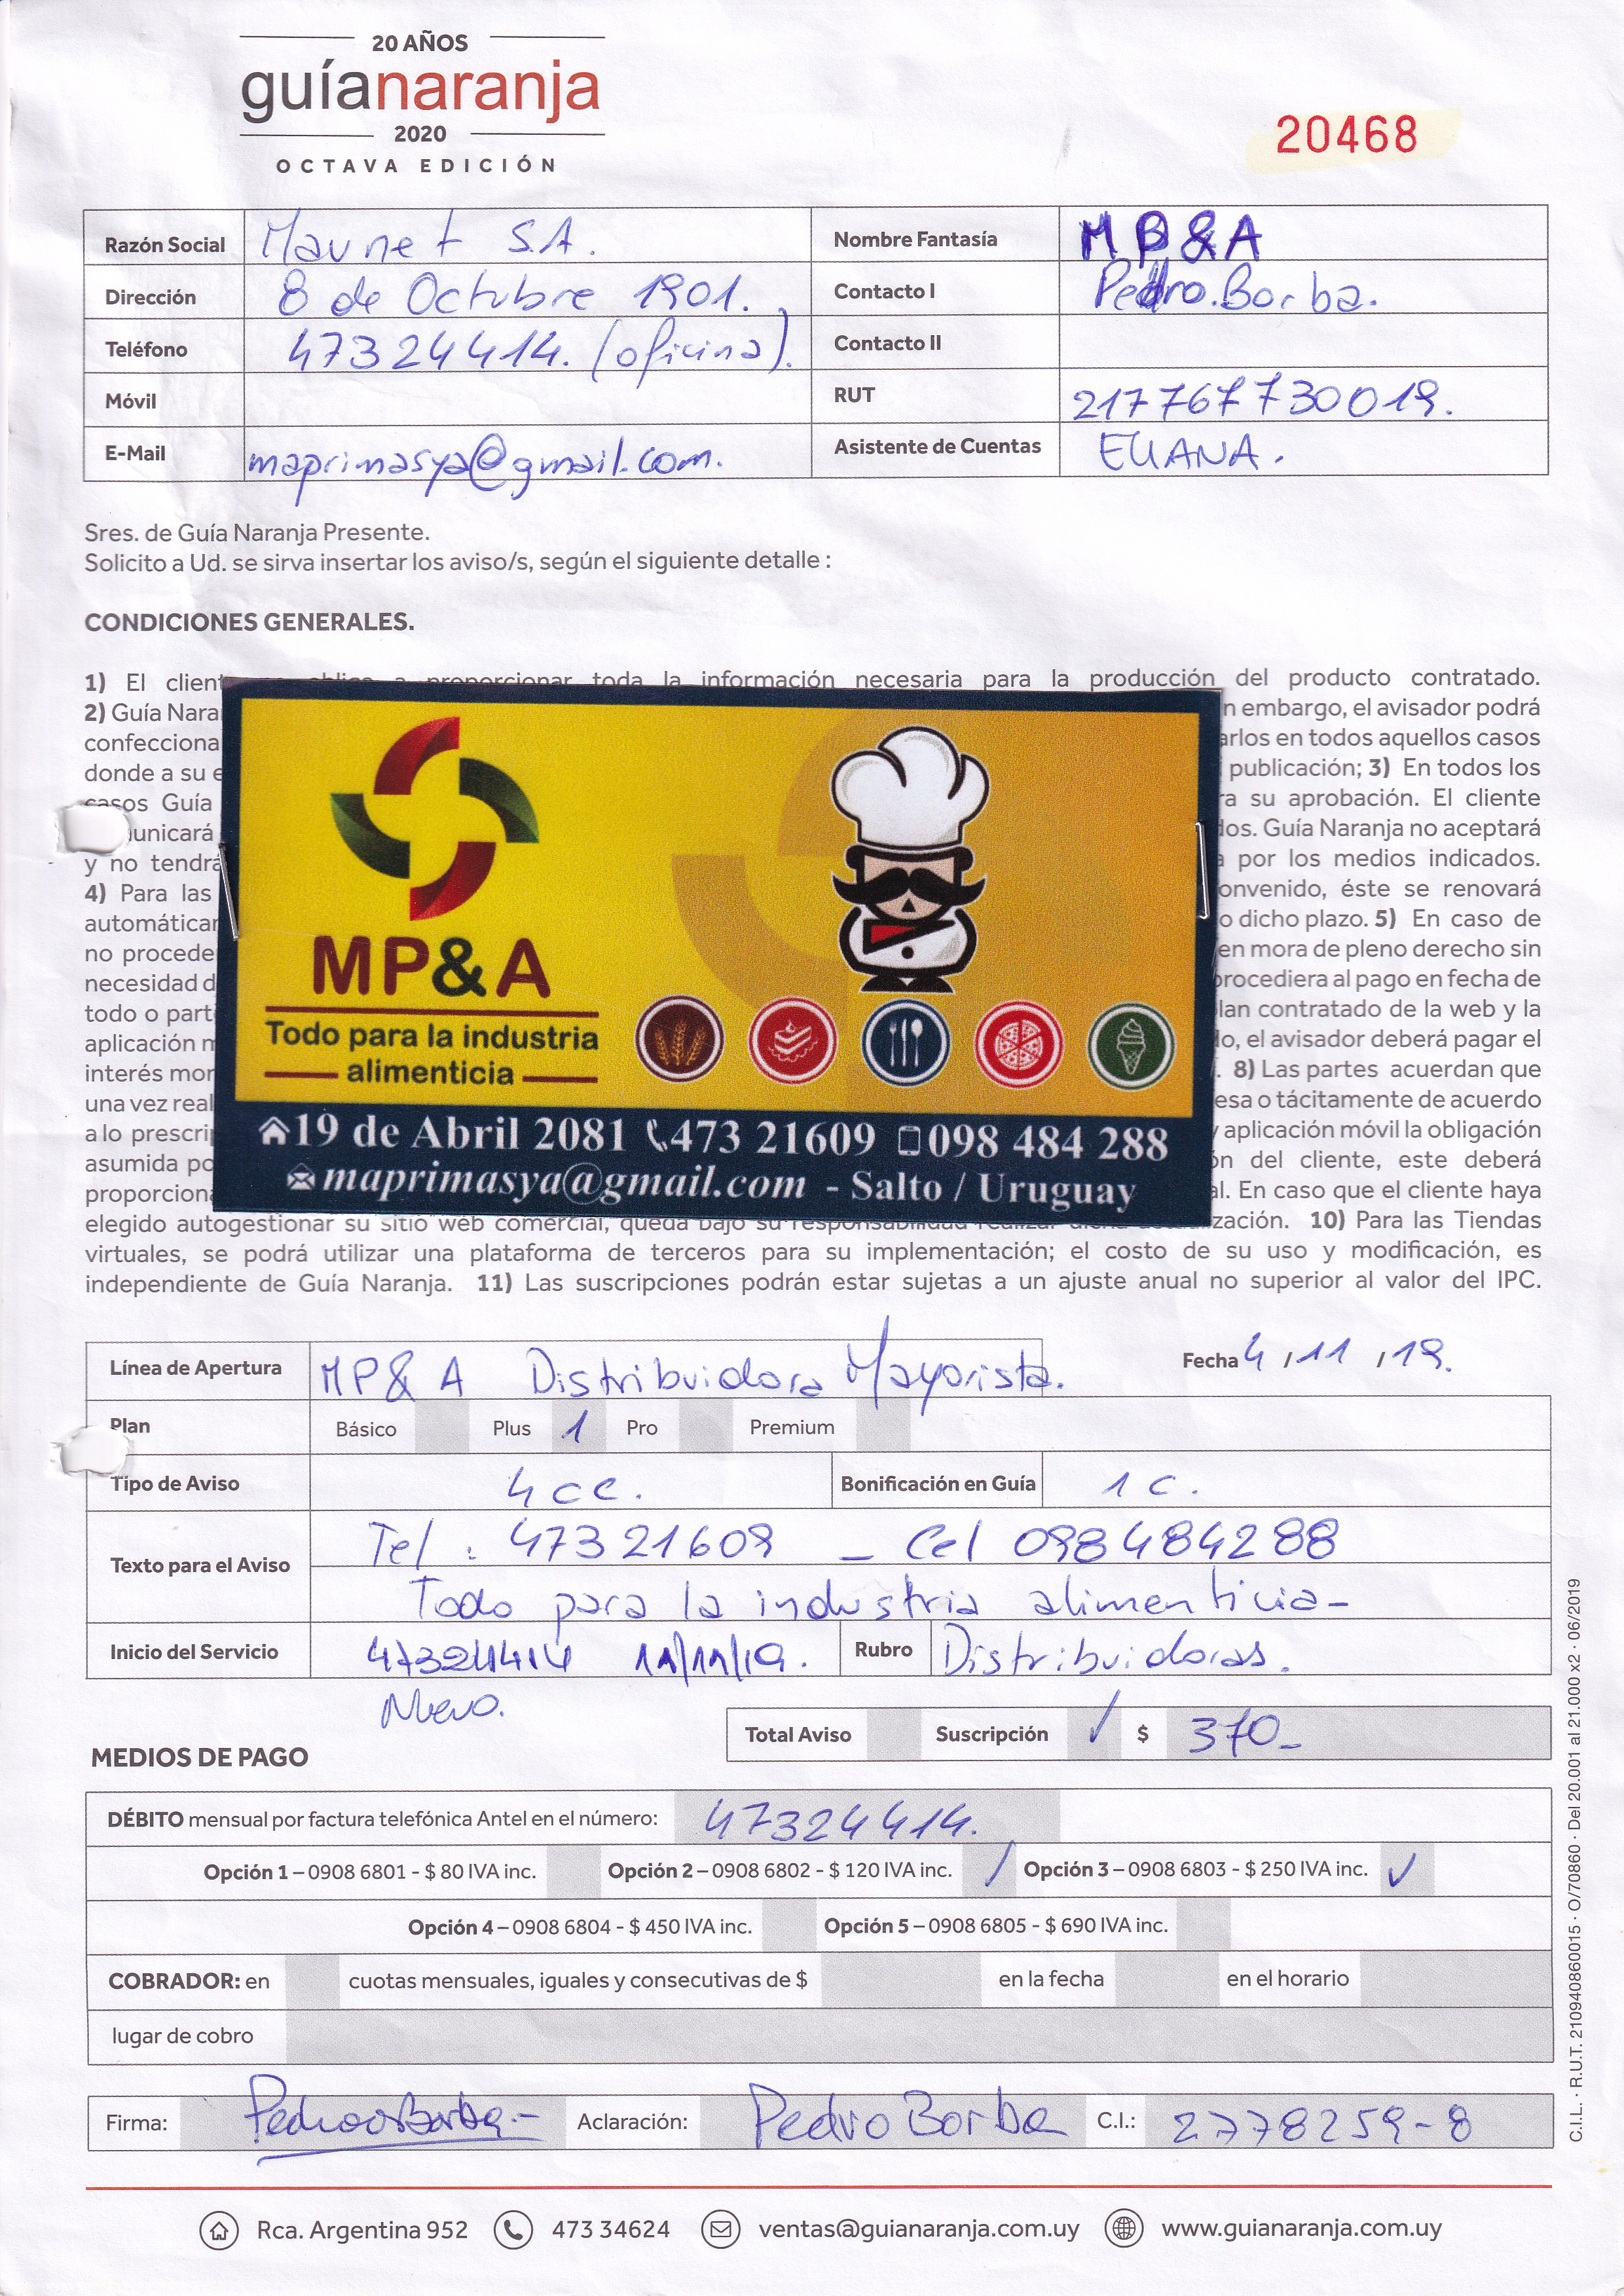 20 AÑOS
guíanaranja
2020
OCTAVA EDICIÓN
20468
Razón Social Maunet S.A. Nombre Fantasía MP&A
Dirección 8 de Octubre 1901. Contacto I Pedro Borba.
Teléfono 47324414. (oficina). Contacto II
Móvil RUT 217767730019.
E-Mail maprimasya@gmail.com. Asistente de Cuentas ELIANA.
Sres. de Guía Naranja Presente.
Solicito a Ud. se sirva insertar los aviso/s, según el siguiente detalle :
CONDICIONES GENERALES.
1) El client se obliga a proporcionar toda la información necesaria para la producción del producto contratado.
2) Guía Nara n embargo, el avisador podrá
confecciona arlos en todos aquellos casos
donde a su e publicación; 3) En todos los
casos Guía ra su aprobación. El cliente
unicará dos. Guía Naranja no aceptará
y no tendrá a por los medios indicados.
4) Para las onvenido, éste se renovará
automáticar o dicho plazo. 5) En caso de
no procede en mora de pleno derecho sin
necesidad d procediera al pago en fecha de
todo o part lan contratado de la web y la
aplicación m lo, el avisador deberá pagar el
interés mor . 8) Las partes acuerdan que
una vez real esa o tácitamente de acuerdo
a lo prescrip y aplicación móvil la obligación
asumida po ón del cliente, este deberá
proporciona al. En caso que el cliente haya
elegido autogestionar su sitio web comercial, queda bajo su responsabilidad realizar dicha actualización. 10) Para las Tiendas
virtuales, se podrá utilizar una plataforma de terceros para su implementación; el costo de su uso y modificación, es
independiente de Guía Naranja. 11) Las suscripciones podrán estar sujetas a un ajuste anual no superior al valor del IPC.
MP&A
Todo para la industria
alimenticia
19 de Abril 2081 473 21609 098 484 288
maprimasya@gmail.com - Salto / Uruguay
Línea de Apertura MP&A Distribuidora Mayorista. Fecha 4 / 11 / 19.
Plan Básico Plus 1 Pro Premium
Tipo de Aviso 4 cc. Bonificación en Guía 1 c.
Texto para el Aviso Tel : 47321609 _ Cel 098484288
Todo para la industria alimenticia_
Inicio del Servicio 47324414 11/11/19. Rubro Distribuidoras.
Nuevo.
Total Aviso Suscripción $ 370_
MEDIOS DE PAGO
DÉBITO mensual por factura telefónica Antel en el número: 47324414.
Opción 1 – 0908 6801 - $ 80 IVA inc. Opción 2 – 0908 6802 - $ 120 IVA inc. Opción 3 – 0908 6803 - $ 250 IVA inc.
Opción 4 – 0908 6804 - $ 450 IVA inc. Opción 5 – 0908 6805 - $ 690 IVA inc.
COBRADOR: en cuotas mensuales, iguales y consecutivas de $ en la fecha en el horario
lugar de cobro
Firma: Pedro Borba Aclaración: Pedro Borba C.I.: 2778259-8
Rca. Argentina 952 473 34624 ventas@guianaranja.com.uy www.guianaranja.com.uy
C.I.L. · R.U.T. 210940860015 · O/70860 · Del 20.001 al 21.000 x2 · 06/2019